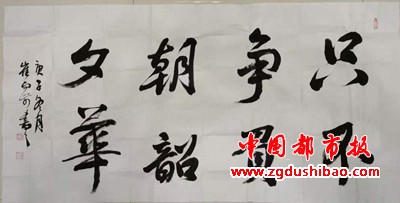 只争朝夕
不負韶華
庚子冬月
中國都市报
www.zgdushibao.com